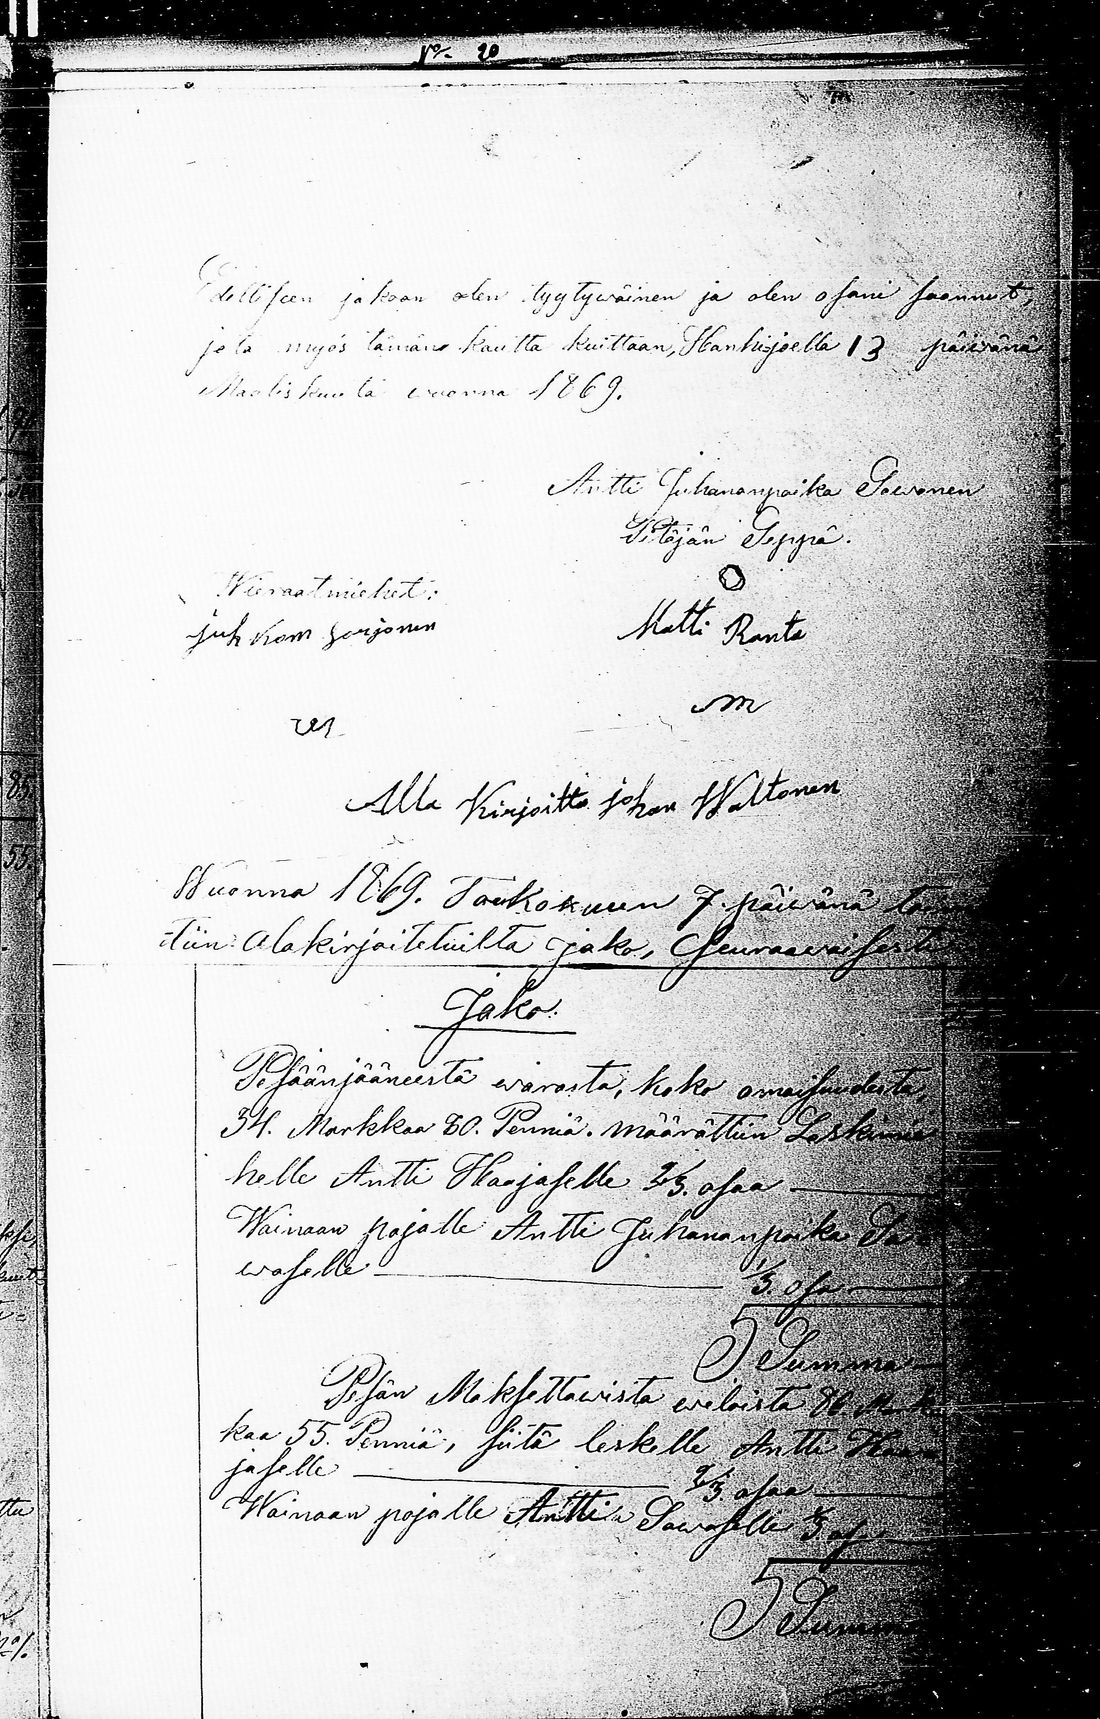 No. 20
Edelliseen jakoon olen tyytywäinen ja olen osani saannut,
jota myös tämän kautta kuittaan, Hankisjoella 13 päiwänä
Maaliskuuta wuonna 1869.
Antti Juhananpoika Sawonen
Pitäjän Seppä.
Wieraatmiehet:
juh Kom jorjonen
Matti Ranta
Alla Kirjoitta johan Waltonen
Wuonna 1869. Toukokuun 7. päiwänä
tiin Alakirjoitetuilta jako, Seuraawaisesti
Jako.
Pesäänjääneestä warasta, koko omaisuudesta,
34. Markkaa 80. Penniä. määrättiin Leskimie
helle Antti Haajaselle 2/3. osaa
Wainaan pojalle Antti Juhananpoika Sa
waselle 1/3. osa
Summa
Pesän Maksettawista weloista 86. Mark
kaa 55. Penniä, siitä leskelle Antti Haa
jaselle 2/3. osaa
Wainaan pojalle Antti Sawaselle 1/3 os.
Summa